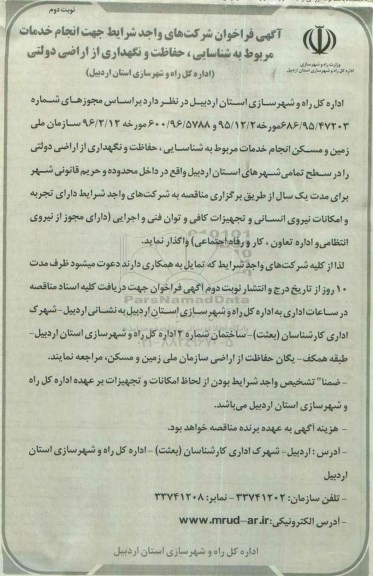 نوبت دوم
آگهی فراخوان شرکت‌های واجد شرایط جهت انجام خدمات
مربوط به شناسایی ، حفاظت و نگهداری از اراضی دولتی
(اداره کل راه و شهرسازی استان اردبیل)
وزارت راه و شهرسازی
اداره کل راه و شهرسازی استان اردبیل
اداره کل راه و شهرسازی استان اردبیل در نظر دارد براساس مجوزهای شماره
۶۸۶/۹۵/۴۷۲۰۳مورخه ۹۵/۱۲/۲ و ۶۰۰/۹۶/۵۷۸۸ مورخه ۹۶/۲/۱۲ سازمان ملی
زمین و مسکن انجام خدمات مربوط به شناسایی ، حفاظت و نگهداری از اراضی دولتی
را در سطح تمامی شهرهای استان اردبیل واقع در داخل محدوده و حریم قانونی شهر
برای مدت یک سال از طریق برگزاری مناقصه به شرکت‌های واجد شرایط دارای تجربه
و امکانات نیروی انسانی و تجهیزات کافی و توان فنی و اجرایی (دارای مجوز از نیروی
انتظامی و اداره تعاون ، کار و رفاه اجتماعی) واگذار نماید.
لذا از کلیه شرکت‌های واجد شرایط که تمایل به همکاری دارند دعوت میشود ظرف مدت
۱۰ روز از تاریخ درج و انتشار نوبت دوم آگهی فراخوان جهت دریافت کلیه اسناد مناقصه
در ساعات اداری به اداره کل راه و شهرسازی استان اردبیل به نشانی اردبیل - شهرک
اداری کارشناسان (بعثت) - ساختمان شماره ۲ اداره کل راه و شهرسازی استان اردبیل-
طبقه همکف - یگان حفاظت از اراضی سازمان ملی زمین و مسکن، مراجعه نمایند.
- ضمنا" تشخیص واجد شرایط بودن از لحاظ امکانات و تجهیزات بر عهده اداره کل راه
و شهرسازی استان اردبیل می‌باشد.
- هزینه آگهی به عهده برنده مناقصه خواهد بود.
- آدرس : اردبیل- شهرک اداری کارشناسان (بعثت) - اداره کل راه و شهرسازی استان
اردبیل
- تلفن سازمان: ۳۳۷۴۱۲۰۲ - نمابر: ۳۳۷۴۱۲۰۸
- آدرس الکترونیکی:www.mrud-ar.ir
اداره کل راه و شهرسازی استان اردبیل
ParsNamadData